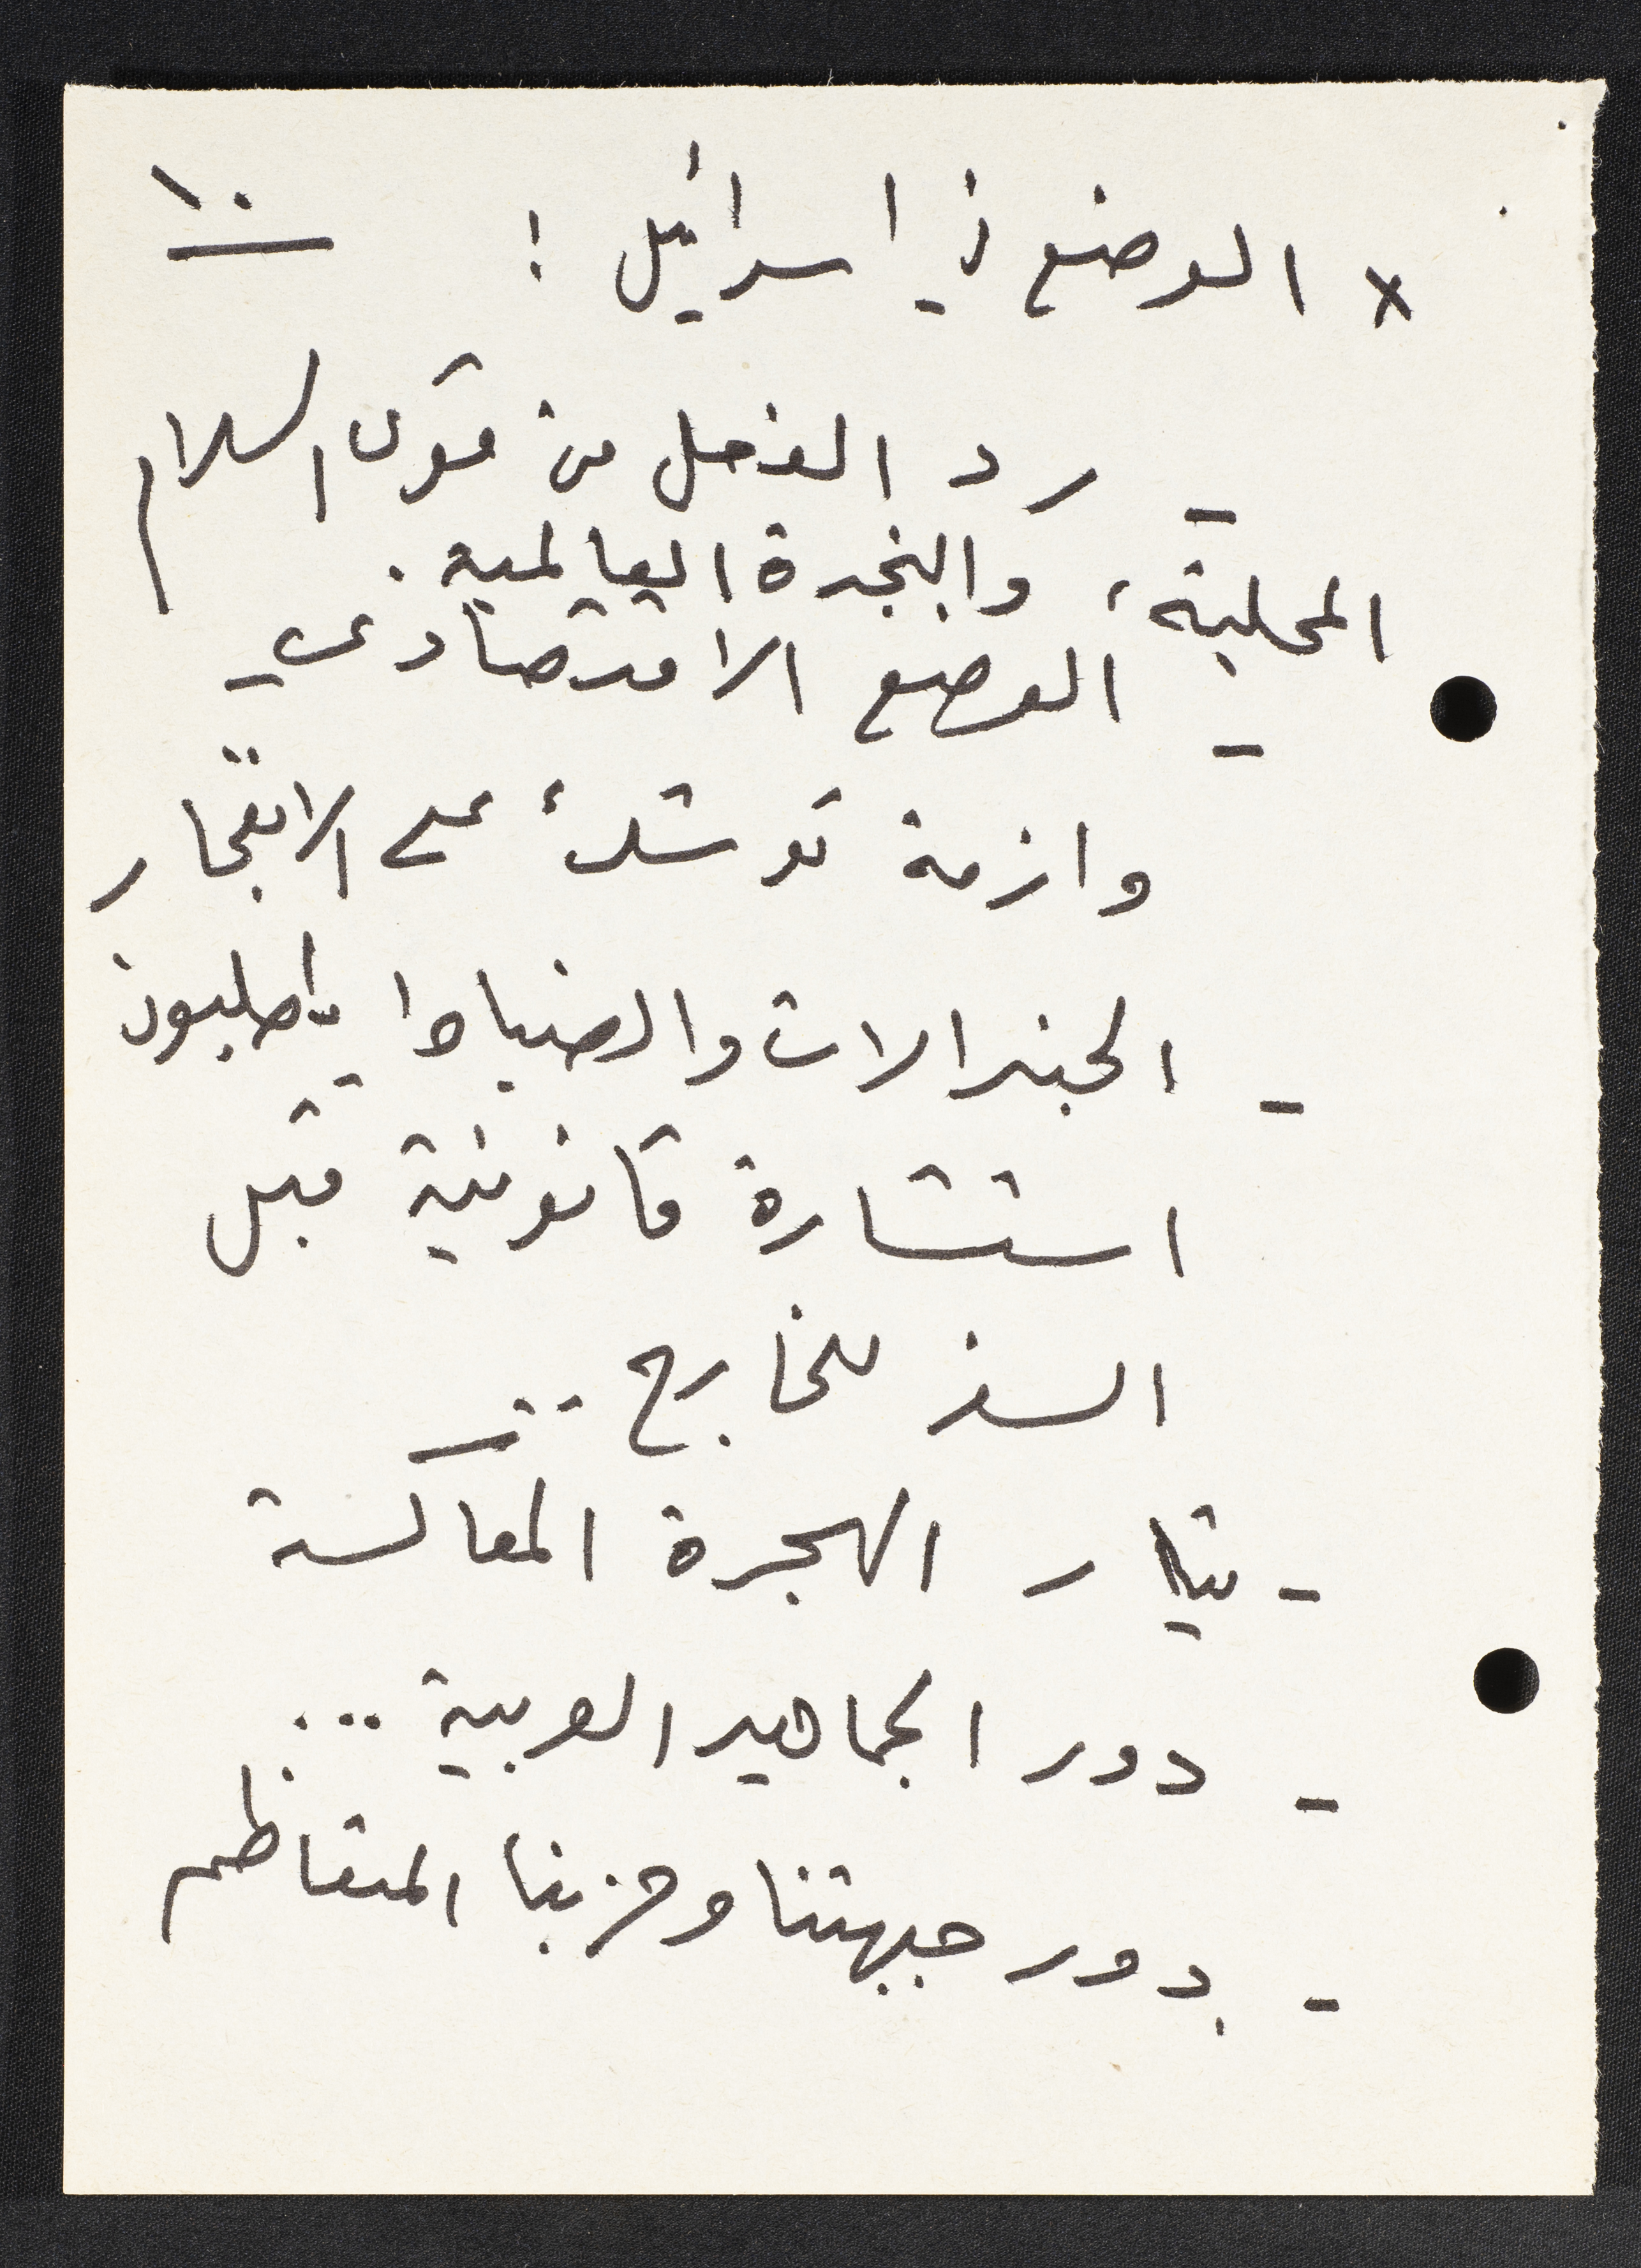 ١٠
x الوضع في اسرائيل :
- رد الفعل من قوى السلام
المحلية، والنجدة العالمية.
- الوضع الاقتصادي
وازمة توشك على الانفجار
- الجنرالات والضباط يطلبون
استشارة قانونية قبل
السفر للخارج ..
- تيار الهجرة المعاكسة
- دور الجماهير العربية ...
- دور جبهتنا وحزبنا المتعاظم